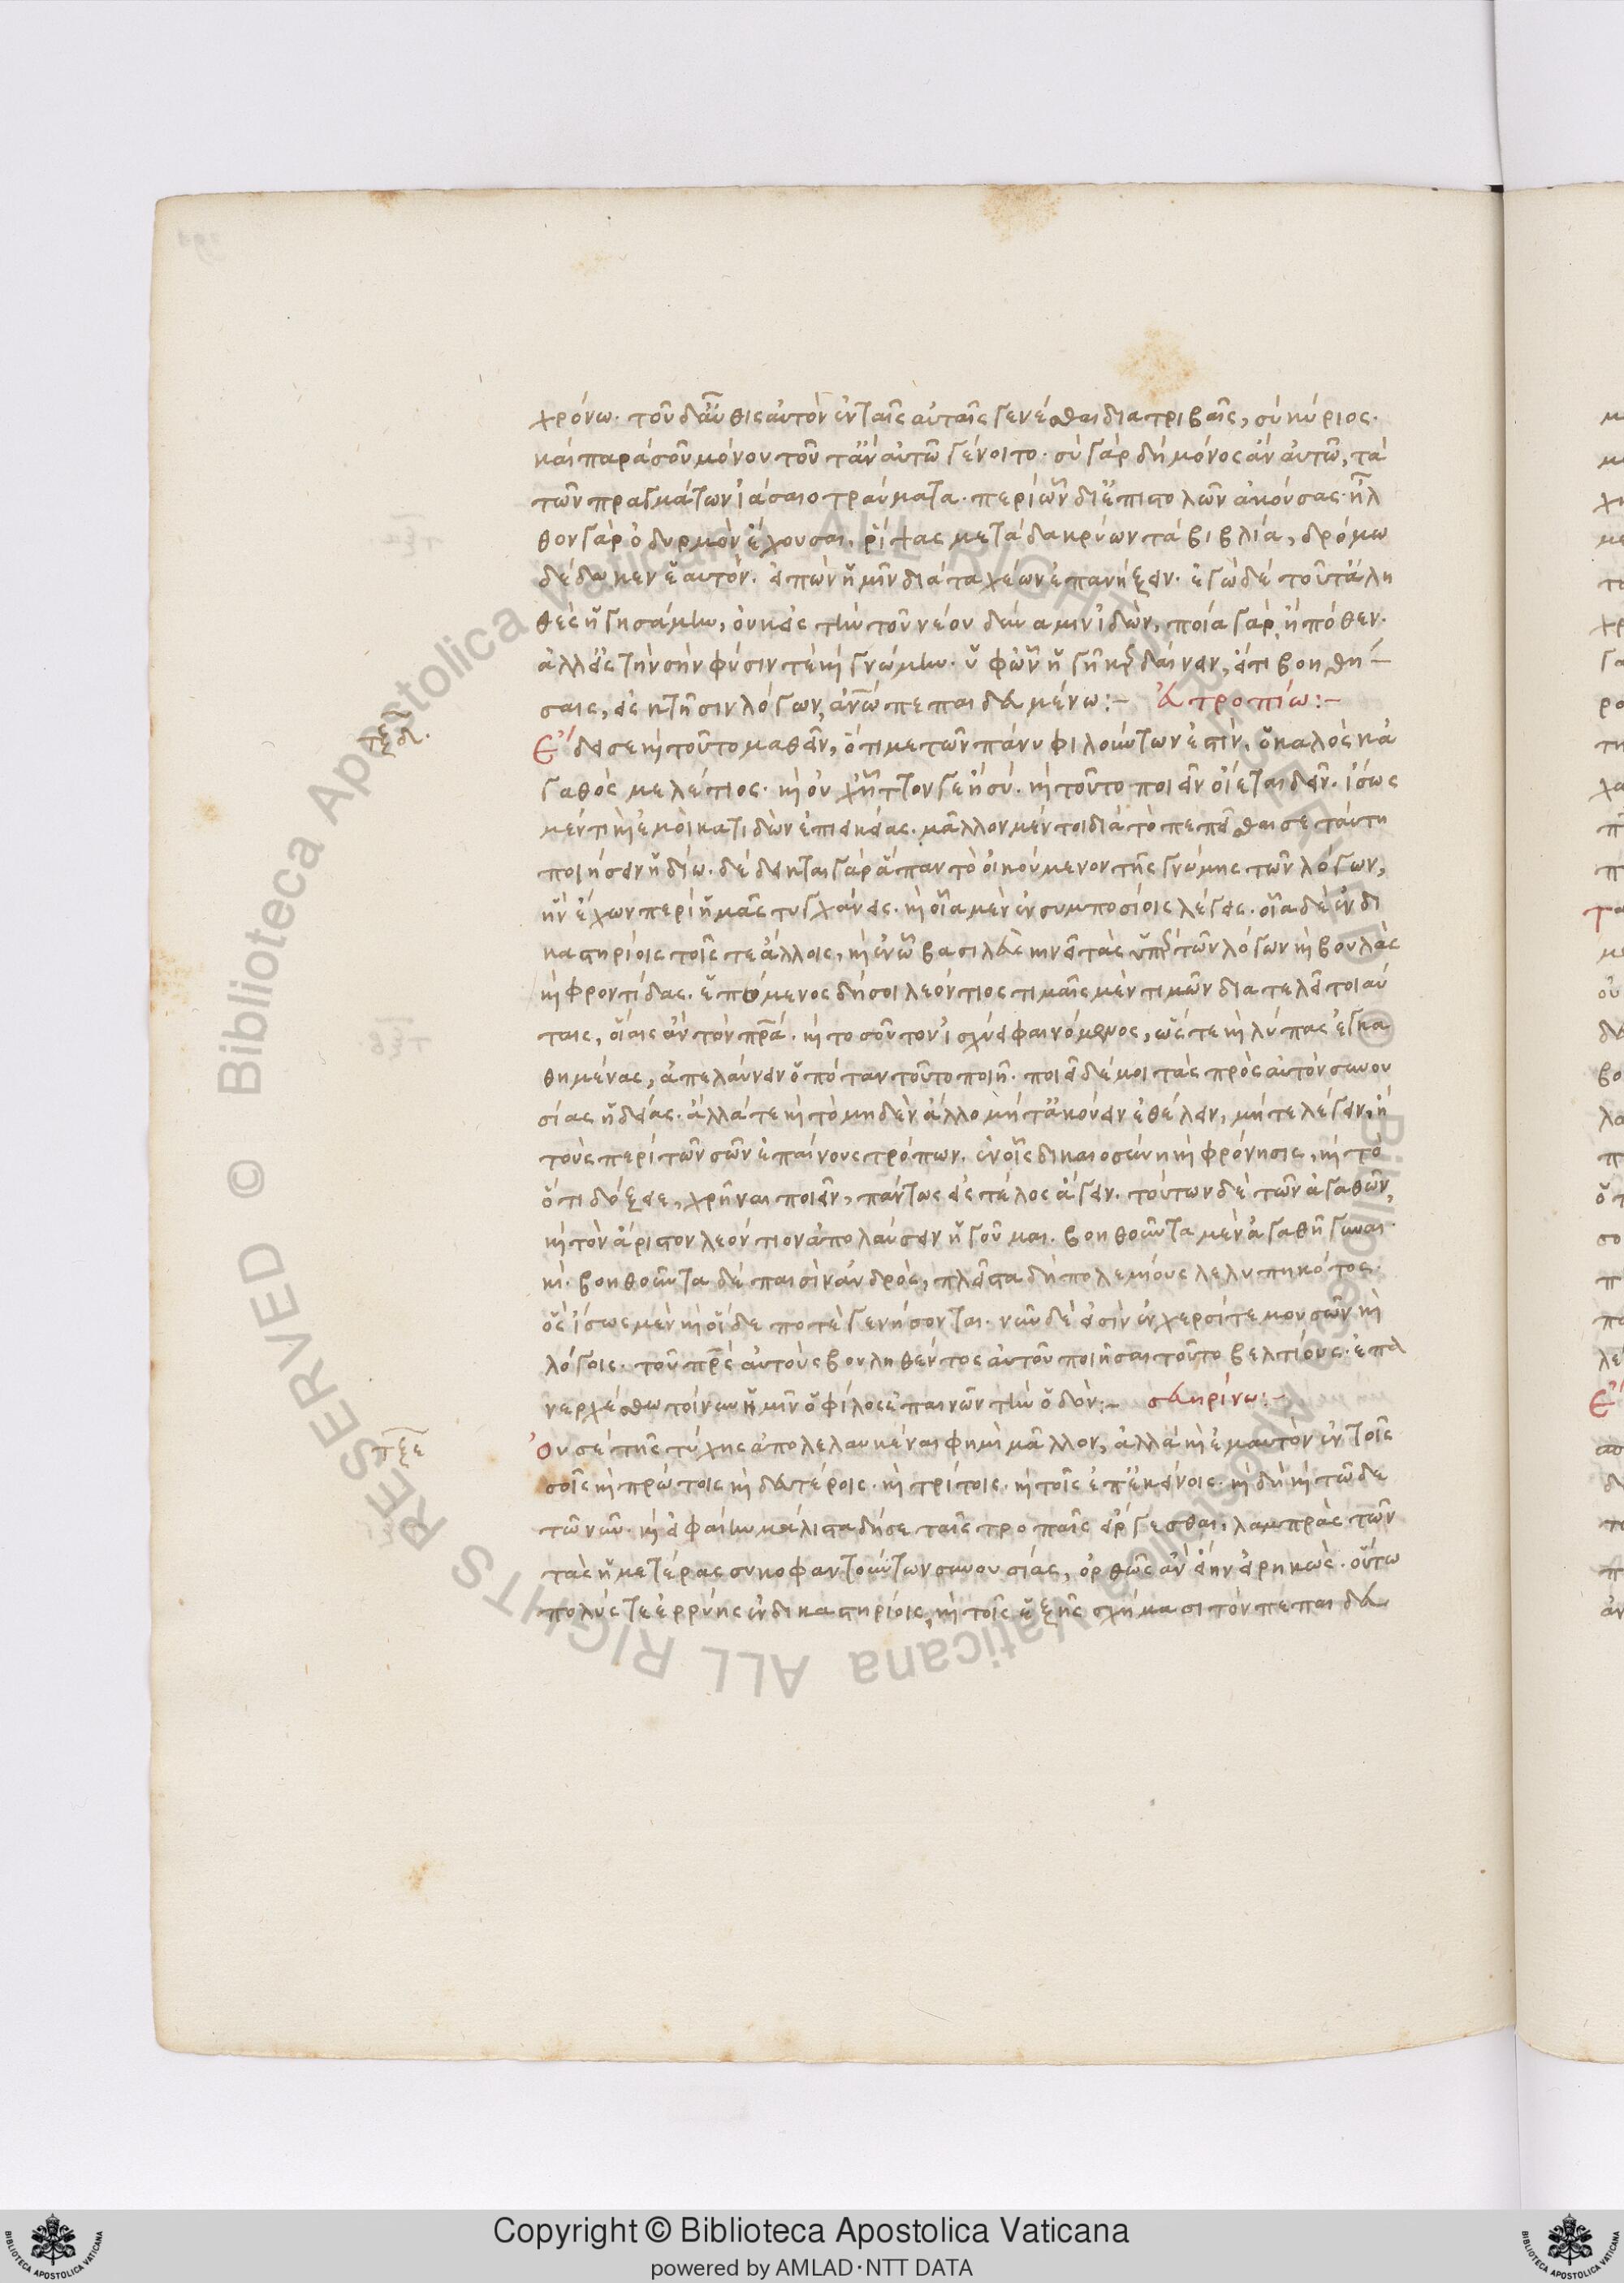 χρόνω. τοῦ δ' αὖθις αὐτὸν ἐν ταῖς αὐταῖς γενέσθαι διατριβαῖς, σὺ κύριος.
καὶ παρὰ σοῦ μόνου τοῦτ' ἂν αὐτῶ γένοιτο. σὺ γὰρ δὴ μόνος ἂν αὐτῶ, τὰ
τῶν πραγμάτων ἰάσαιο τραύματα. περὶ ὧν δι' ἐπιστολῶν ἀκούσας. ἦλ
θον γὰρ ὀδυρμὸν ἔχουσαι. ῥίψας μετὰ δακρύων τὰ βιβλία, δρόμω
δέδωκεν ἑαυτόν. εἰπὼν ἡμῖν διὰ ταχέων ἐπανήξειν. ἐγὼ δὲ τοῦτ' ἀλη
θὲς ἡγησάμην, οὐκ εἰς τὴν τοῦ νέου δύναμιν ἰδών, ποία γὰρ ἢ πόθεν.
ἀλλ' εἰς τὴν σὴν φύσιν τὲ καὶ γνώμην. ὑφ' ὧν ἡγῆ κερδαίνειν, εἴ τι βοηθή
σαις, εἰς κτῆσιν λόγων, ἀνω πεπαιδευμένω:- εὐτροπίω:-
τξδ.
Ἔδει σε καὶ τοῦτο μαθεῖν, ὅτι με τῶν πάνυ φιλούντων ἐστὶν, ὁ καλὸς κἀ
γαθὸς μελέτιος. καὶ οὐχ ἧττον γε ἢ σύ. καὶ τοῦτο ποιεῖν οἴεται δεῖν. ἴσως
μέν τι καὶ ἐμοὶ κατιδὼν ἐπιεικείας. μᾶλλον μέν τοι διὰ τὸ πεπεῖσθαι σε ταύτη
ποιήσειν ἡδίω. δέδεικται γὰρ ἅπαν τὸ οἰκούμενον τῆς γνώμης τῶν λόγων,
ἣν ἔχων περὶ ἡμᾶς τυγχάνεις. καὶ οἷα μὲν ἐν συμποσίοις λέγεις. οἷα δὲ ἐν δι
καστηρίοις τοῖς τε ἄλλοις, καὶ ἐν ᾧ βασιλεὺς κινεῖ τὰς ὑπὲρ τῶν λόγων καὶ βουλὰς
καὶ φροντίδας. ἑπόμενος δή σοι λεόντιος τιμαῖς μὲν τιμῶν διατελεῖ τοιαύ
ταις, οἵαις ἂν τὸν πρα. καὶ τοσοῦτον ἰσχύει φαινόμενος, ὥστε καὶ λύπας ἐγκα
θημένας, ἀπελαύνειν ὁπόταν τοῦτο ποιῆ. ποιεῖ δέ μοι τὰς πρὸς αὐτὸν συνου
σίας ἡδείας. ἄλλά τε καὶ τὸ μηδὲν ἄλλο μήτ' ἀκούειν ἐθέλειν, μήτε λέγειν, ἢ
τοὺς περὶ τῶν σῶν ἐπαίνους τρόπων. ἐν οἷς δικαιοσύνη καὶ φρόνησις, καὶ τὸ
ὅτι δόξειε, χρῆναι ποιεῖν, πάντως εἰς τέλος ἄγειν. τούτων δὲ τῶν ἀγαθῶν,
καὶ τὸν ἄριστον λεόντιον ἀπολαύσειν ἡγοῦμαι. βοηθοῦντα μὲν ἀγαθῆ γυναικὶ.
καὶ. βοηθοῦντα δὲ παισὶν ἀνδρὸς, πλεῖστα δὴ πολεμίους λελυπηκότος.
οἳ ἴσως μὲν καὶ οἵδε ποτὲ γενήσονται. νῦν δὲ εἰσὶν ἐν χερσί τε μουσῶν καὶ
λόγοις. τοῦ πρὸς αὐτοὺς βουληθέντος αὐτοῦ ποιῆσαι τοῦτο βελτίους. ἐπα
νερχέσθω τοίνυν ἡμῖν ὁ φίλος ἐπαινῶν τὴν ὁδόν:- σευηρίνω:-
τξε
Οὐ σὲ τῆς τύχης ἀπολελαυκέναι φημὶ μᾶλλον, ἀλλὰ καὶ ἐμαυτὸν ἐν τοῖς
σοῖς καὶ πρώτοις καὶ δευτέροις. καὶ τρίτοις. καὶ τοῖς ἐπ' ἐκείνοις. καὶ δὴ καὶ τῶδε
τῶ νῦν. καὶ εἰ φαίην μάλιστα δή σε ταῖς τροπαῖς εἴργεσθαι, λαμπρὰς τῶν
τὰς ἡμετέρας συκοφαντούντων συνουσίας, ὀρθῶς ἂν εἴην εἰρηκώς. οὕτω
πολύς τε ἐρρύης ἐν δικαστηρίοις, καὶ τοῖς ἑξῆς σχήμασι τὸν πεπαιδευ
Copyright © Biblioteca Apostolica Vaticana
powered by AMLAD·NTT DATA